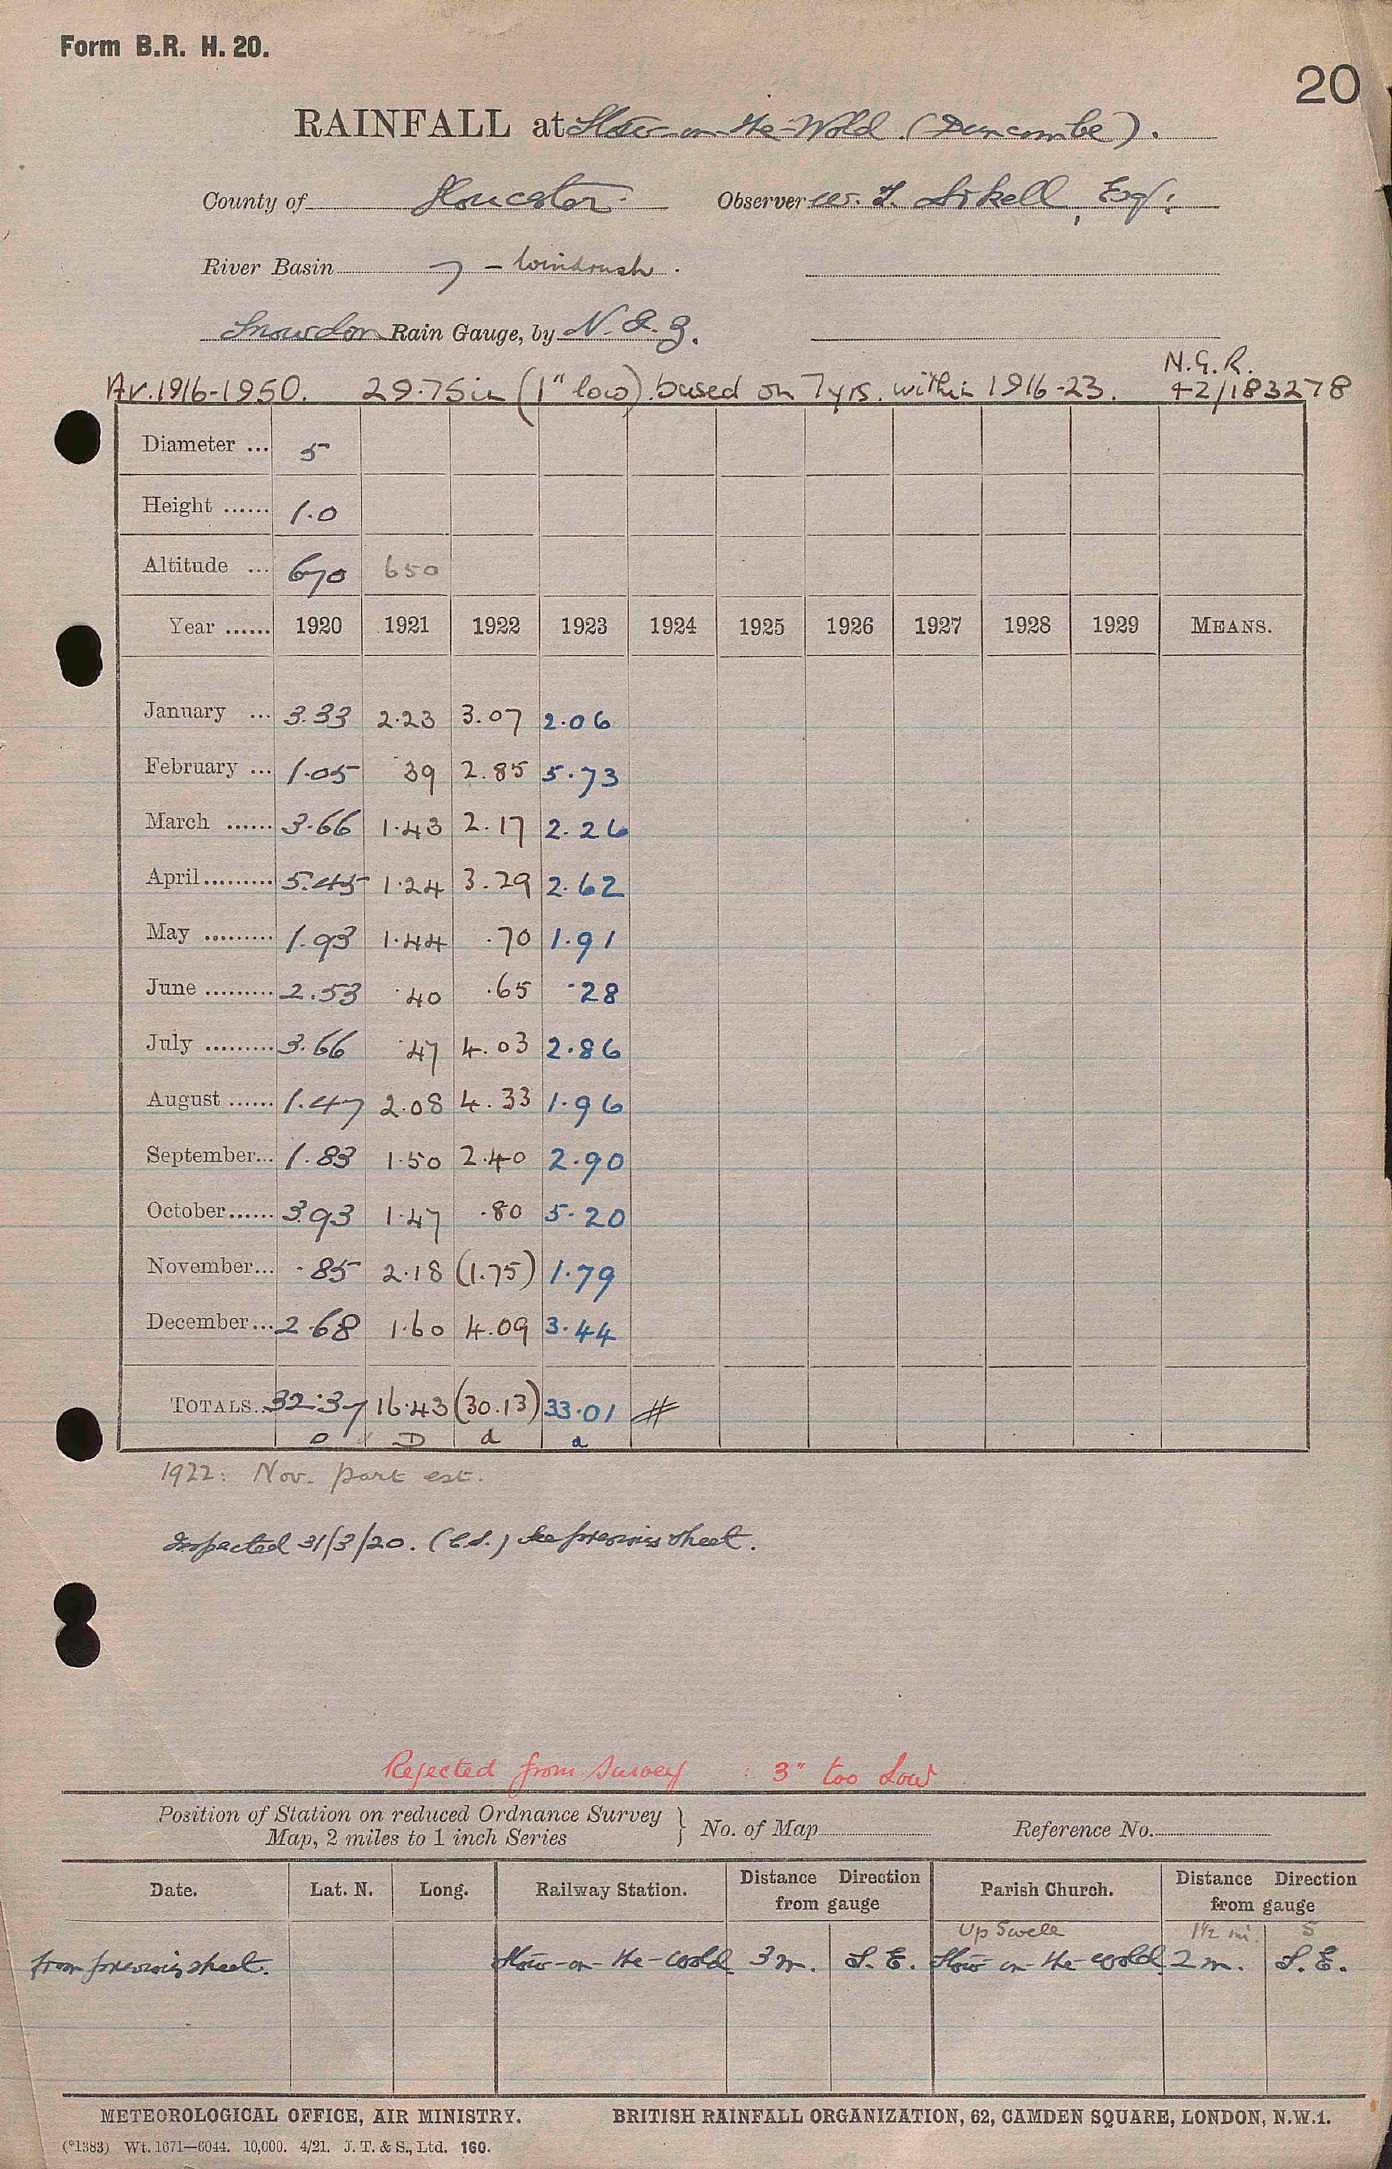 Form B.R. H. 20.
20
RAINFALL at Stow-on-the-Wold (Duncombe).
County of Gloucester. Observer W. T. Esq:
River Basin 7 - Windrush.
Snowdon Rain Gauge, by N. & Z.
N.G.R.
Av. 1916-1950. 29.75 in (1" low) based on 7 yrs. within 1916-23. 42/183278
Diameter ... 5
Height ...... 1.0
Altitude ... 670 650
Year ...... 1920 1921 1922 1923 1924 1925 1926 1927 1928 1929 MEANS.
January ... 3.33 2.23 3.07 2.06
February ... 1.05 .39 2.85 5.73
March ...... 3.66 1.43 2.17 2.26
April ......... 5.45 1.24 3.29 2.62
May ......... 1.93 1.44 .70 1.91
June ......... 2.53 .40 .65 .28
July ......... 3.66 .47 4.03 2.86
August ...... 1.47 2.08 4.33 1.96
September... 1.83 1.50 2.40 2.90
October ...... 3.93 1.47 .80 5.20
November... .85 2.18 (1.75) 1.79
December... 2.68 1.60 4.09 3.44
TOTALS.. 32.37 16.43 (30.13) 33.01 #
D D d a
1922: Nov. part est.
Inspected 31/3/20. (C.S.) See previous sheet.
Rejected from Survey : 3" too Low
Position of Station on reduced Ordnance Survey } No. of Map Reference No.
Map, 2 miles to 1 inch Series
Date. Lat. N. Long. Railway Station. Distance Direction from gauge Parish Church. Distance Direction from gauge
Up Swell 1½ mi. S
from previous sheet. Stow-on-the-Wold 3 m. S.E. Stow-on-the-Wold 2 m. S.E.
METEOROLOGICAL OFFICE, AIR MINISTRY. BRITISH RAINFALL ORGANIZATION, 62, CAMDEN SQUARE, LONDON, N.W.1.
(*1383) Wt. 1671—6044. 10,000. 4/21. J. T. & S., Ltd. 160.